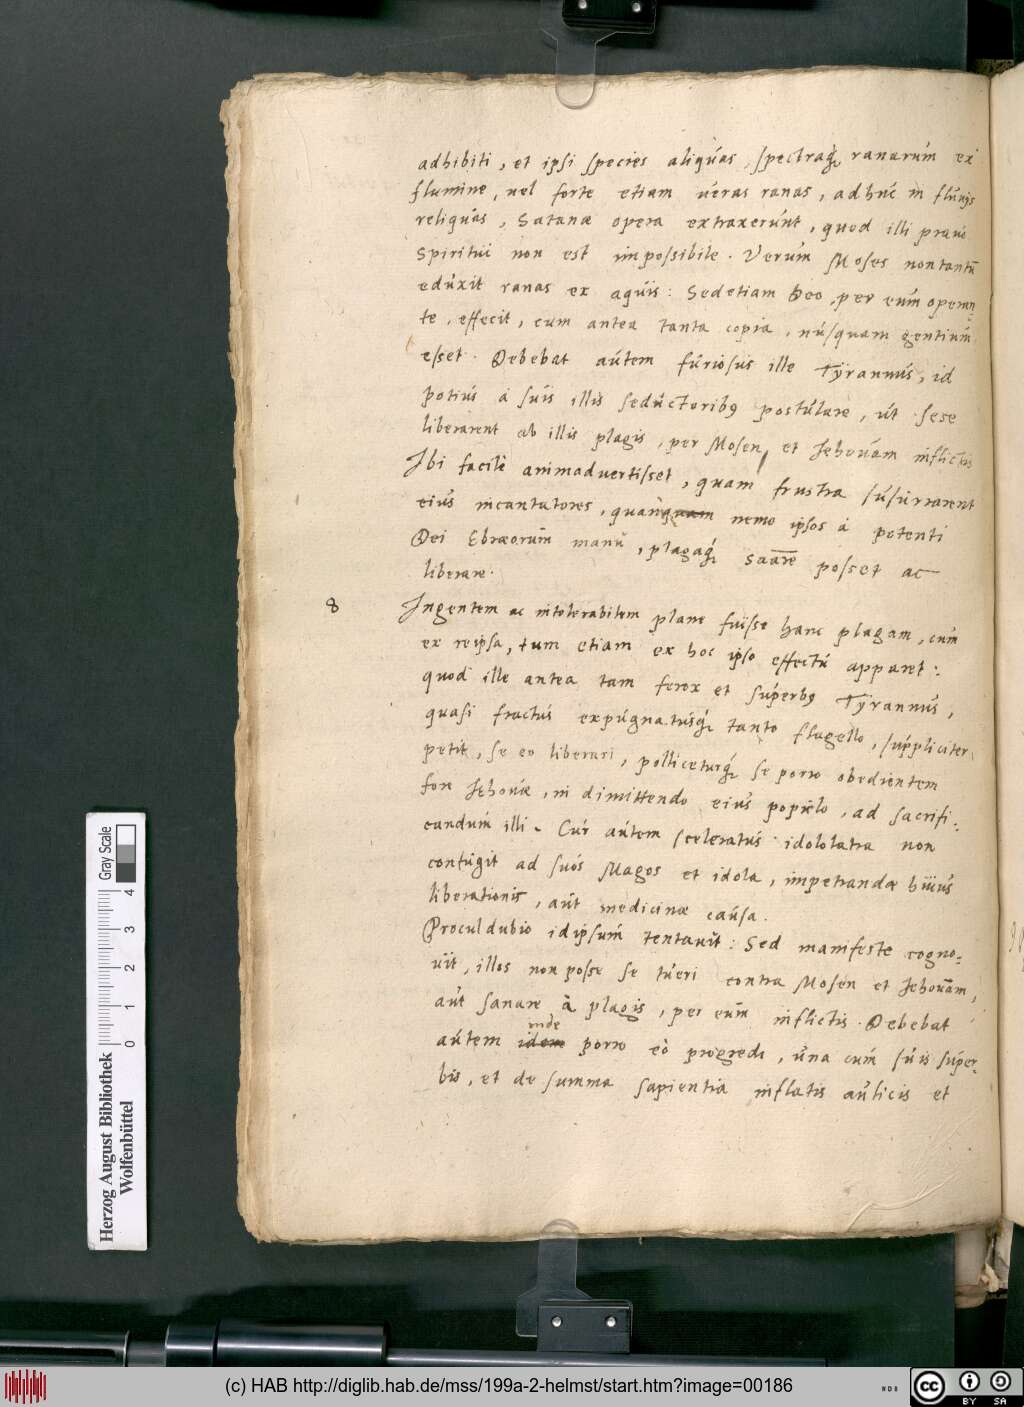 adhibiti, et ipsi species aliquas, spectraq́ ranarum ex
flumine, vel forte etiam veras ranas, adhuc in fluvijs
reliquas, Satanæ opera extraxerunt, quod illi pravo
Spiritui non est impossibile. Verum Moses non tantū
eduxit ranas ex aquis: Sed etiam Deo, per eum operan-
te, effecit, cum antea tanta copia, nusquam gentium
esset. Debebat autem furiosus ille Tyrannus, id
potius à suis illis seductoribꝰ postulare, ut sese
liberarent ab illis plagis, per Mosen, et Jehovam inflictis
Ibi facilè animadvertisset, quam frustra susurrarent
eius incantatores, nemo ipsos à potenti
Dei Ebræorum manu, plagaq́ posset ac
liberare.
8 Ingentem ac intolerabilem plane fuisse hanc plagam, cum
ex reipsa, tum etiam ex hoc ipso effectu apparet:
quod ille antea tam ferox et superbꝰ Tyrannus,
quasi fractus expugnatusq́ tanto flagello, suppliciter
petit, se eo liberari, polliceturq́ se porro obedientem
fore Jehovæ, in dimittendo eius populo, ad sacrifi-
candum illi. Cur autem sceleratus idololatra non
confugit ad suos Magos et idola, impetrandæ huius
liberationis, aut medicinæ causa.
Procul dubio id ipsum tentavit: Sed manifeste cogno-
vit, illos non posse se tueri contra Mosen et Jehovam,
aut sanare à plagis, per eum inflictis. Debebat
inde
autem idem porro eò progredi, una cum suis super-
bis, et de summa sapientia inflatis aulicis et
Herzog August Bibliothek
Wolfenbüttel
0 1 2 3 4 Gray Scale
(c) HAB http://diglib.hab.de/mss/199a-2-helmst/start.htm?image=00186
CC BY SA